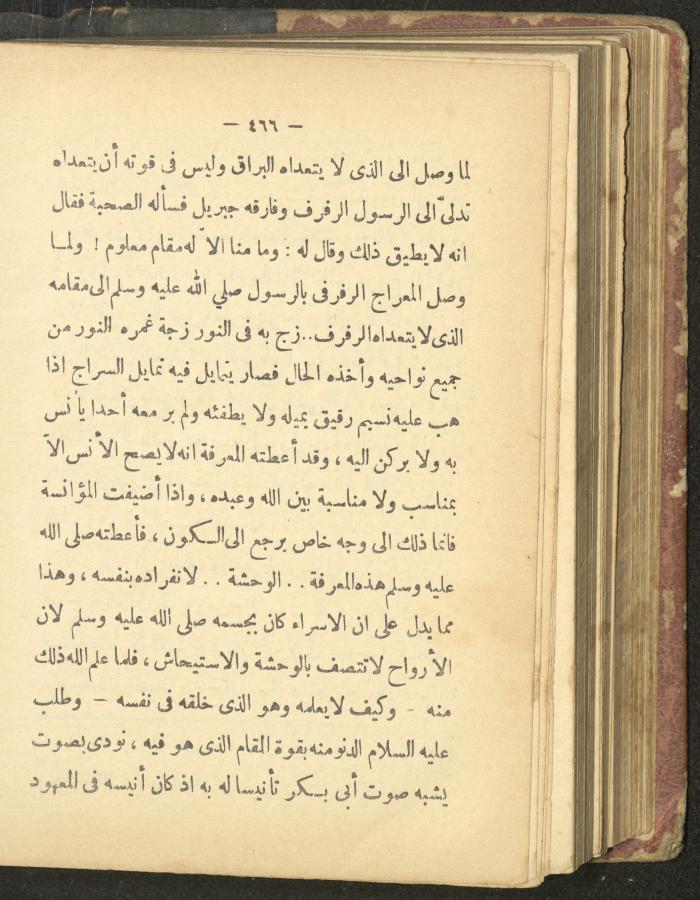 — ٤٦٦ —
لما وصل الى الذى لا يتعداه البراق وليس فى قوته أن يتعداه
تدلىّ الى الرسول الرفرف وفارقه جبريل فسأله الصحبة فقال
انه لا يطيق ذلك وقال له : وما منا الاّ له مقام معلوم ! ولمـا
وصل المعراج الرفرفى بالرسول صلي الله عليه وسلم الى مقامه
الذى لا يتعداه الرفرف..زج به فى النور زجة غمره النور من
جميع نواحيه وأخذه الحال فصار يتمايل فيه تمايل السراج اذا
هب عليه نسيم رقيق يميله ولا يطفئه ولم ير معه أحدا يأنس
به ولا يركن اليه ، وقد أعطته المعرفة انه لا يصح الأنس الاّ
بمناسب ولا مناسبة بين الله وعبده ، واذا أضيفت المؤانسة
فانما ذلك الى وجه خاص يرجع الى الـكون ، فأعطته صلى الله
عليه وسلم هذه المعرفة . . الوحشة . . لانفراده بنفسه ، وهذا
مما يدل على ان الاسراء كان بجسمه صلى الله عليه وسلم لان
الأرواح لا تتصف بالوحشة والاستيحاش ، فلما علم الله ذلك
منه - وكيف لا يعلمه وهو الذى خلقه فى نفسه — وطلب
عليه السلام الدنو منه بقوة المقام الذى هو فيه ، نودى بصوت
يشبه صوت أبى بـكر تأنيسا له به اذ كان أنيسه فى المعهود